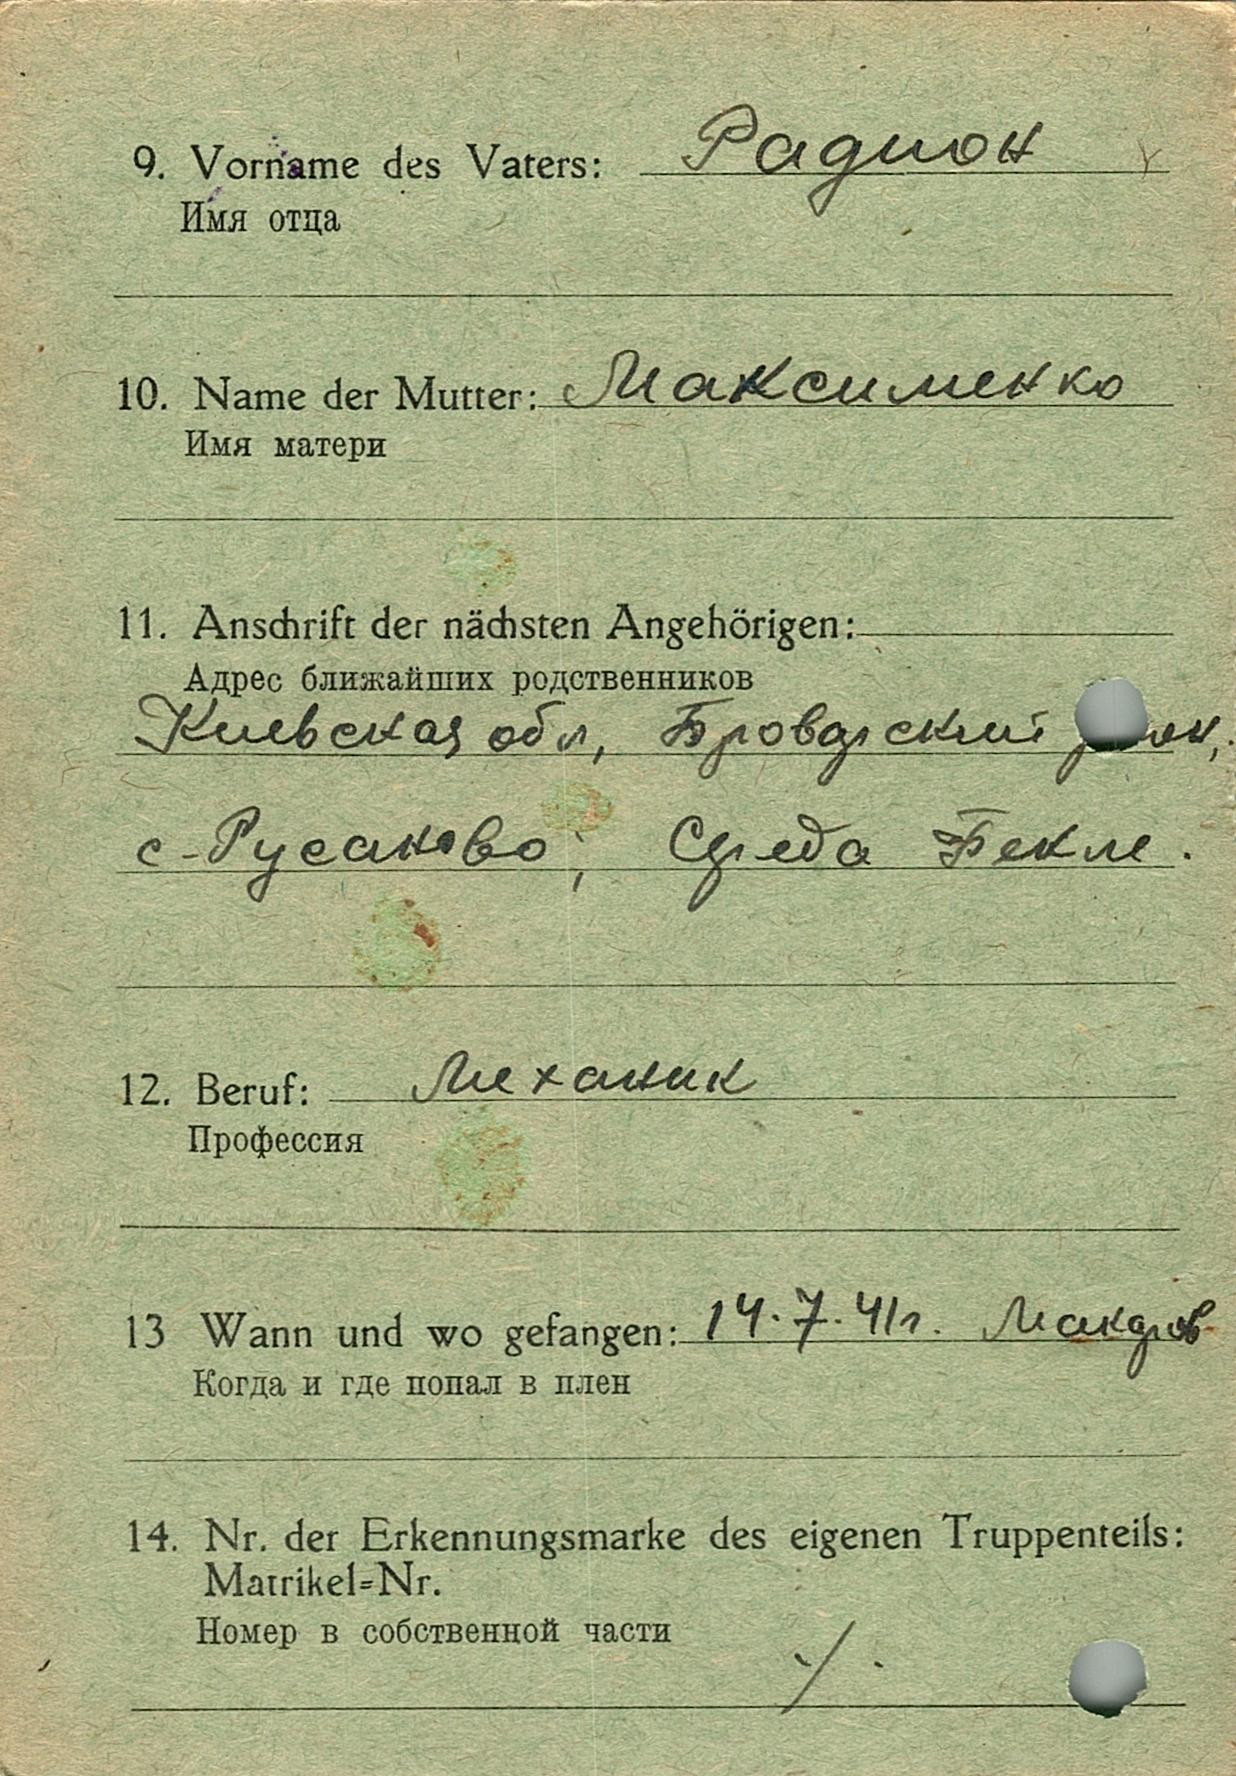 9. Vorname des Vaters: Радион
Имя отца
10. Name der Mutter: Максименко
Имя матери
11. Anschrift der nächsten Angehörigen:
Адрес ближайших родственников
Киевская обл, Броварский
с-Русаново; Середа Фекле.
12. Beruf: Механик
Профессия
13 Wann und wo gefangen: 14.7.41г.
Когда и где попал в плен
14. Nr. der Erkennungsmarke des eigenen Truppenteils:
Matrikel=Nr.
Номер в собственной части